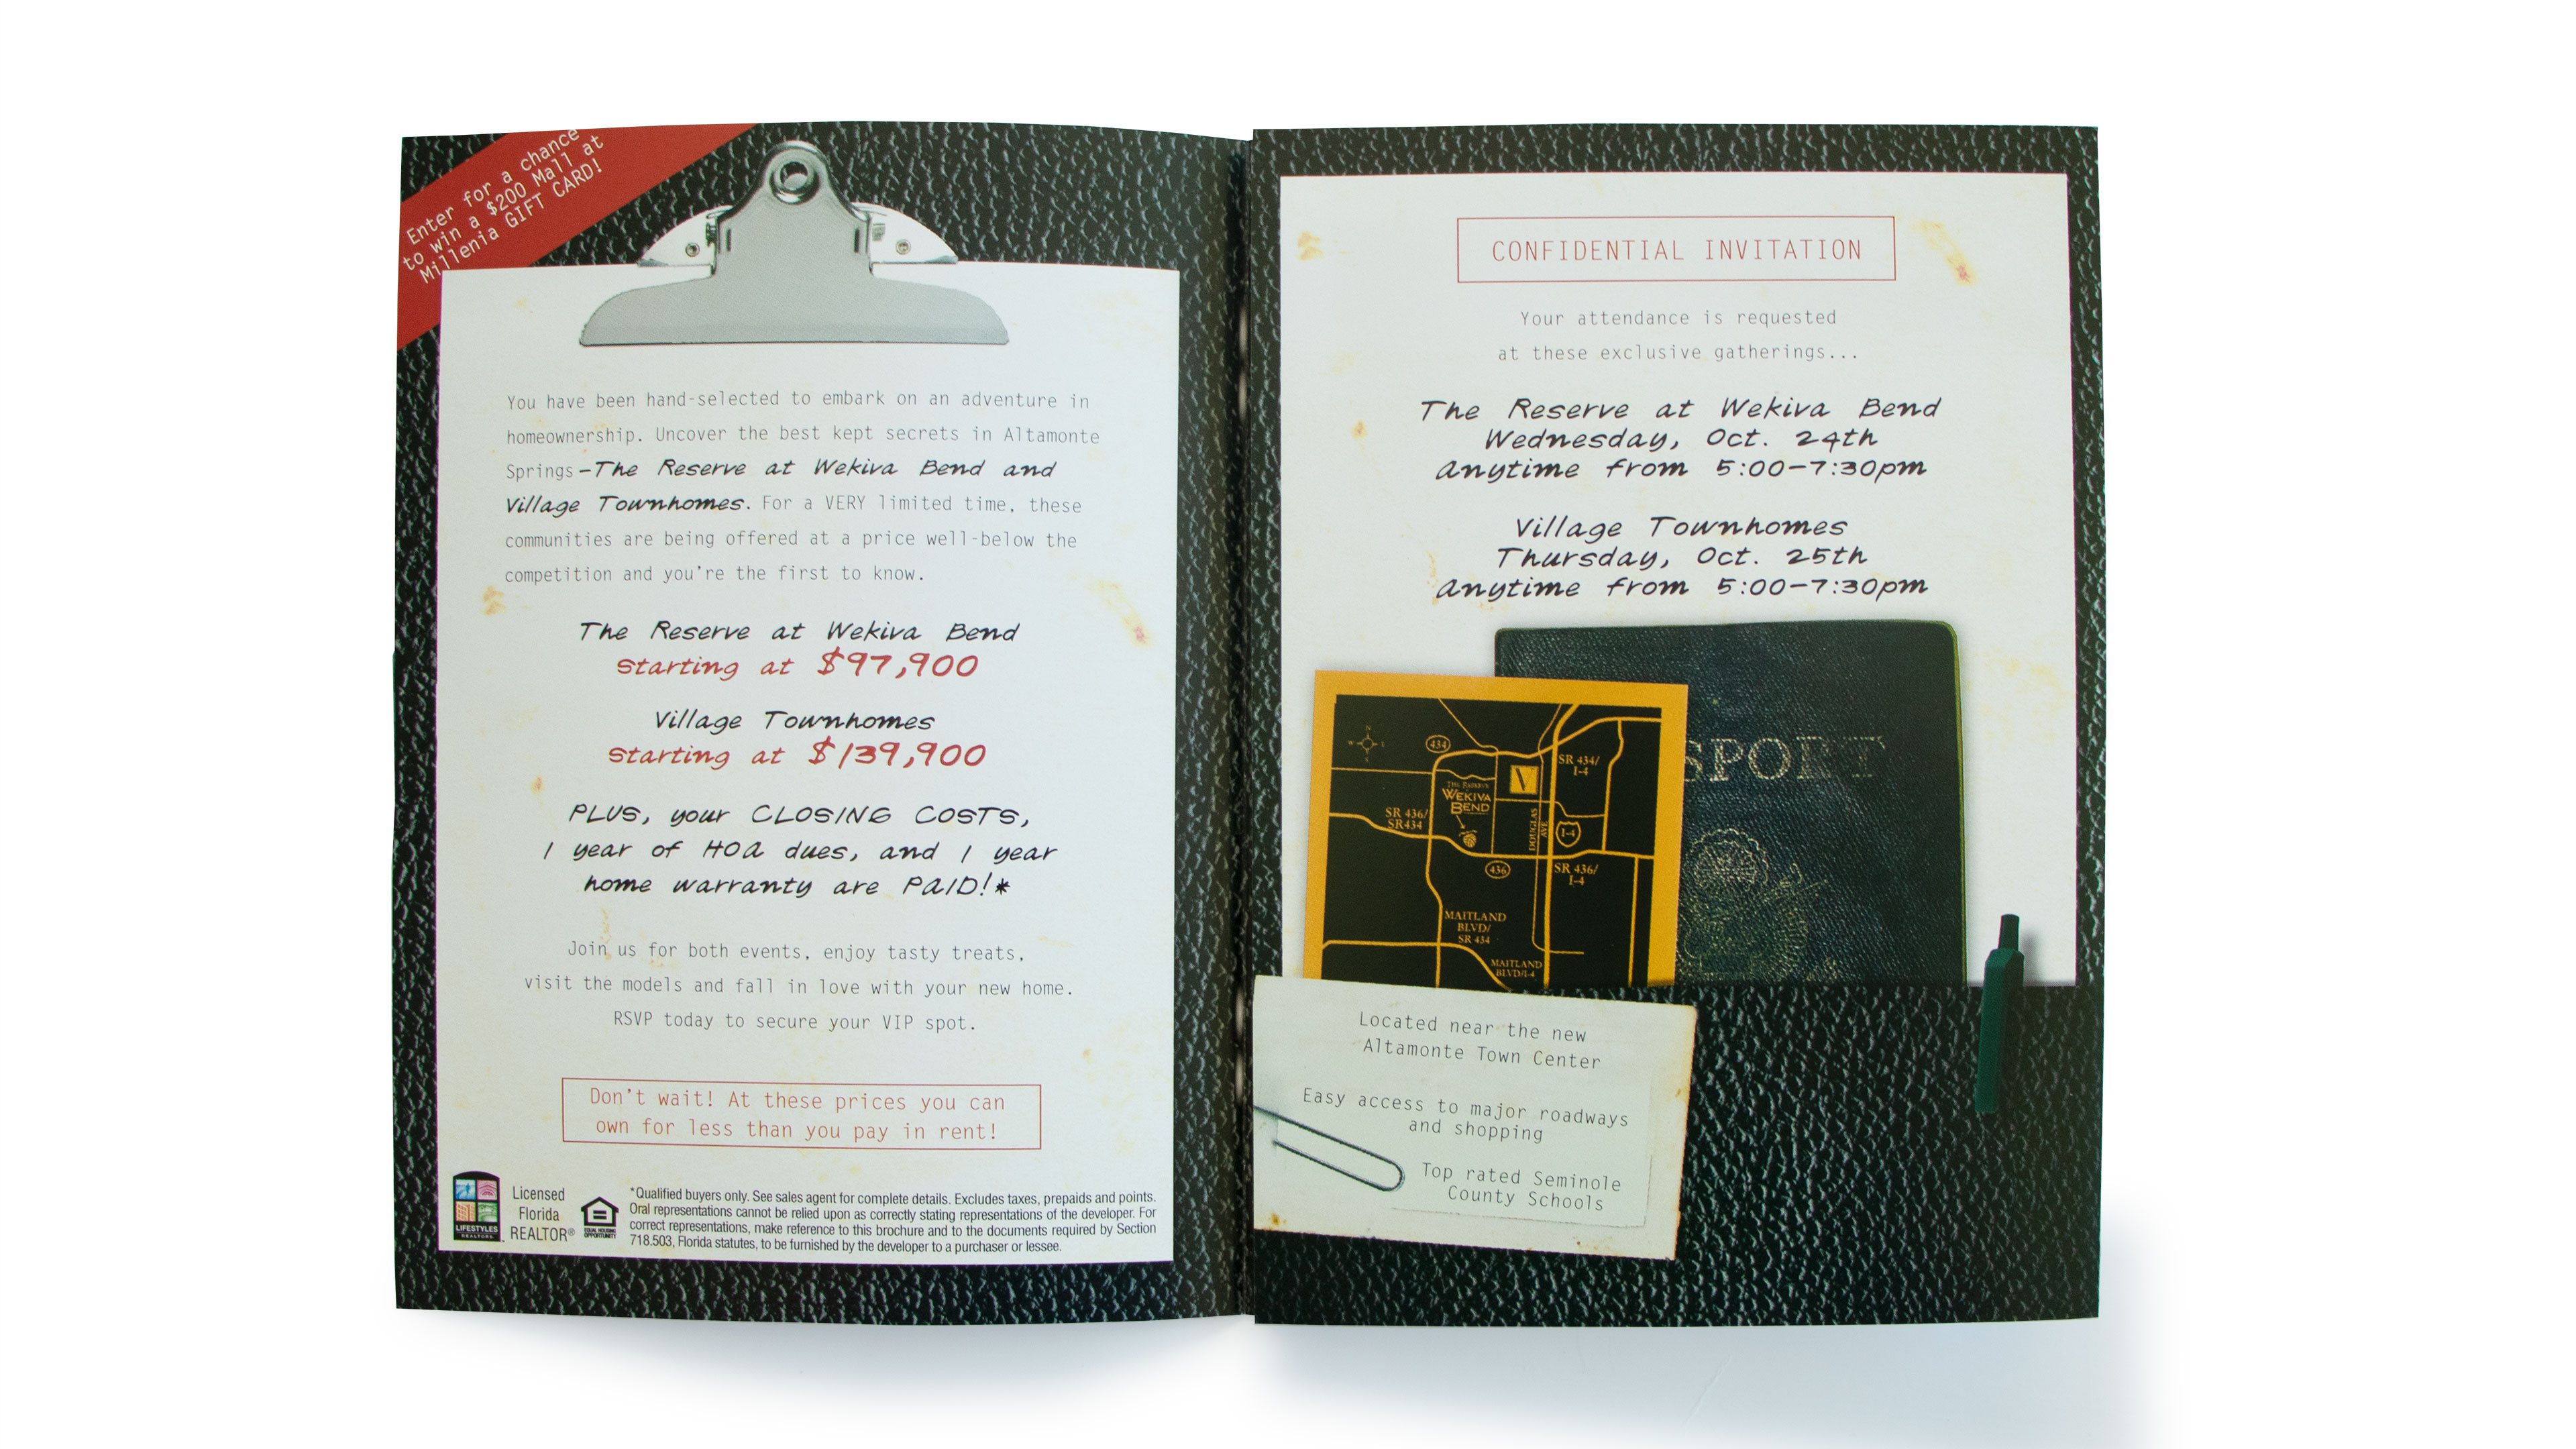 Enter for a chance
to win a $200 Mall at
Millenia GIFT CARD!
You have been hand-selected to embark on an adventure in
homeownership. Uncover the best kept secrets in Altamonte
Springs–The Reserve at Wekiva Bend and
Village Townhomes. For a VERY limited time, these
communities are being offered at a price well-below the
competition and you're the first to know.
The Reserve at Wekiva Bend
Starting at $97,900
Village Townhomes
Starting at $139,900
PLUS, your CLOSING COSTS,
1 year of HOA dues, and 1 year
home warranty are PAID!*
Join us for both events, enjoy tasty treats,
visit the models and fall in love with your new home.
RSVP today to secure your VIP spot.
Don't wait! At these prices you can
own for less than you pay in rent!
LIFESTYLES
REALTORS
Licensed
Florida
REALTOR®
EQUAL HOUSING
OPPORTUNITY
*Qualified buyers only. See sales agent for complete details. Excludes taxes, prepaids and points.
Oral representations cannot be relied upon as correctly stating representations of the developer. For
correct representations, make reference to this brochure and to the documents required by Section
718.503, Florida statutes, to be furnished by the developer to a purchaser or lessee.
CONFIDENTIAL INVITATION
Your attendance is requested
at these exclusive gatherings...
The Reserve at Wekiva Bend
Wednesday, Oct. 24th
Anytime from 5:00-7:30pm
Village Townhomes
Thursday, Oct. 25th
Anytime from 5:00-7:30pm
SPORT
N
434
SR 434/
I-4
V
THE RESERVE
WEKIVA
BEND
SR 436/
SR434
DOUGLAS
AVE
I-4
436
SR 436/
I-4
MAITLAND
BLVD/
SR 434
MAITLAND
BLVD/I-4
Located near the new
Altamonte Town Center
Easy access to major roadways
and shopping
Top rated Seminole
County Schools